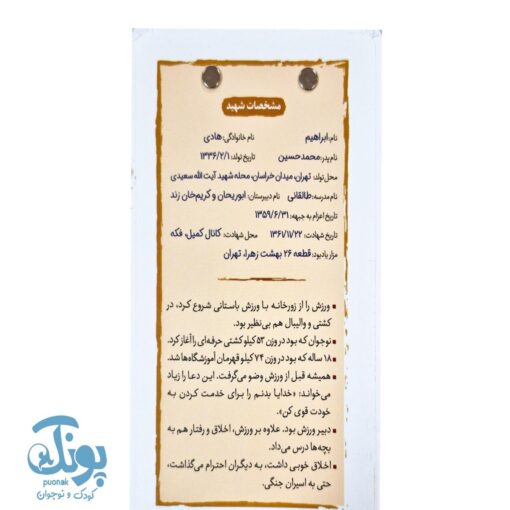 مشخصات شهید
نام: ابراهیم نام خانوادگی: هادی
نام پدر: محمدحسین تاریخ تولد: ۱۳۳۶/۲/۱
محل تولد: تهران، میدان خراسان، محله شهید آیت الله سعیدی
نام مدرسه: طالقانی نام دبیرستان: ابوریحان و کریم‌خان زند
تاریخ اعزام به جبهه: ۱۳۵۹/۶/۳۱
تاریخ شهادت: ۱۳۶۱/۱۱/۲۲ محل شهادت: کانال کمیل، فکه
مزار یادبود: قطعه ۲۶ بهشت زهرا، تهران
ورزش را از زورخانه با ورزش باستانی شروع کرد، در
کشتی و والیبال هم بی‌نظیر بود.
نوجوان که بود در وزن ۵۳ کیلو کشتی حرفه‌ای را آغاز کرد.
۱۸ ساله که بود در وزن ۷۴ کیلو قهرمان آموزشگاه‌ها شد.
همیشه قبل از ورزش وضو می‌گرفت. این دعا را زیاد
می‌خواند: «خدایا بدنم را برای خدمت کردن به
خودت قوی کن».
دبیر ورزش بود. علاوه بر ورزش، اخلاق و رفتار هم به
بچه‌ها درس می‌داد.
اخلاق خوبی داشت، به دیگران احترام می‌گذاشت،
حتی به اسیران جنگی.
پونک
puonak
کودک و نوجوان